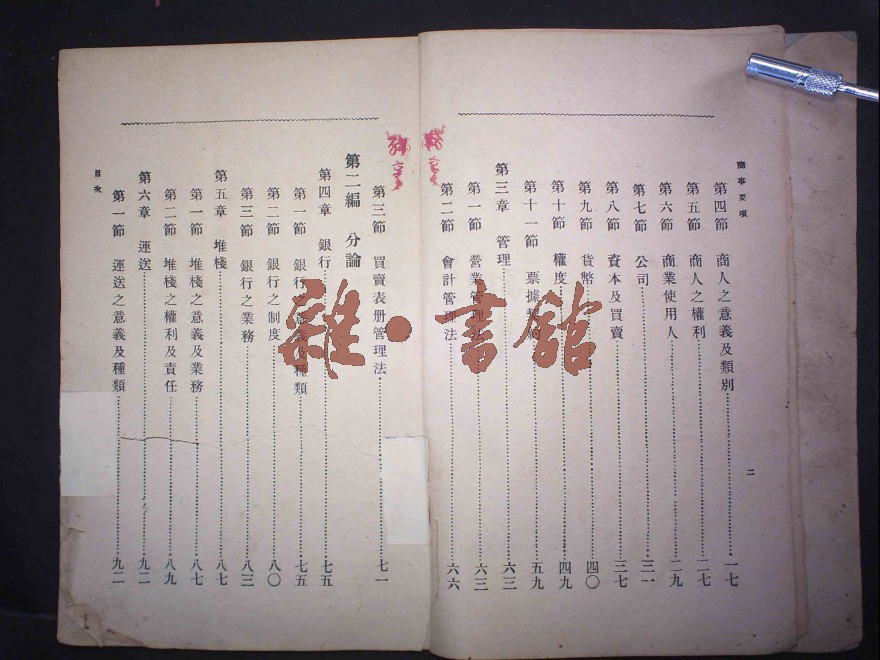 商事要項
第四節 商人之意義及類別 一七
第五節 商人之權利 二七
第六節 商業使用人 二九
第七節 公司 三一
第八節 資本及買賣 三七
第九節 貨幣 四〇
第十節 權度 四九
第十一節 票據 五九
第三章 管理 六三
第一節 營業管理法 六三
第二節 會計管理法 六六
二
第三節 買賣表册管理法 七一
第二編 分論
第四章 銀行 七五
第一節 銀行之意義及種類 七五
第二節 銀行之制度 八〇
第三節 銀行之業務 八三
第五章 堆棧 八七
第一節 堆棧之意義及業務 八七
第二節 堆棧之權利及責任 八九
第六章 運送 九二
第一節 運送之意義及種類 九二
目次
雜·書館